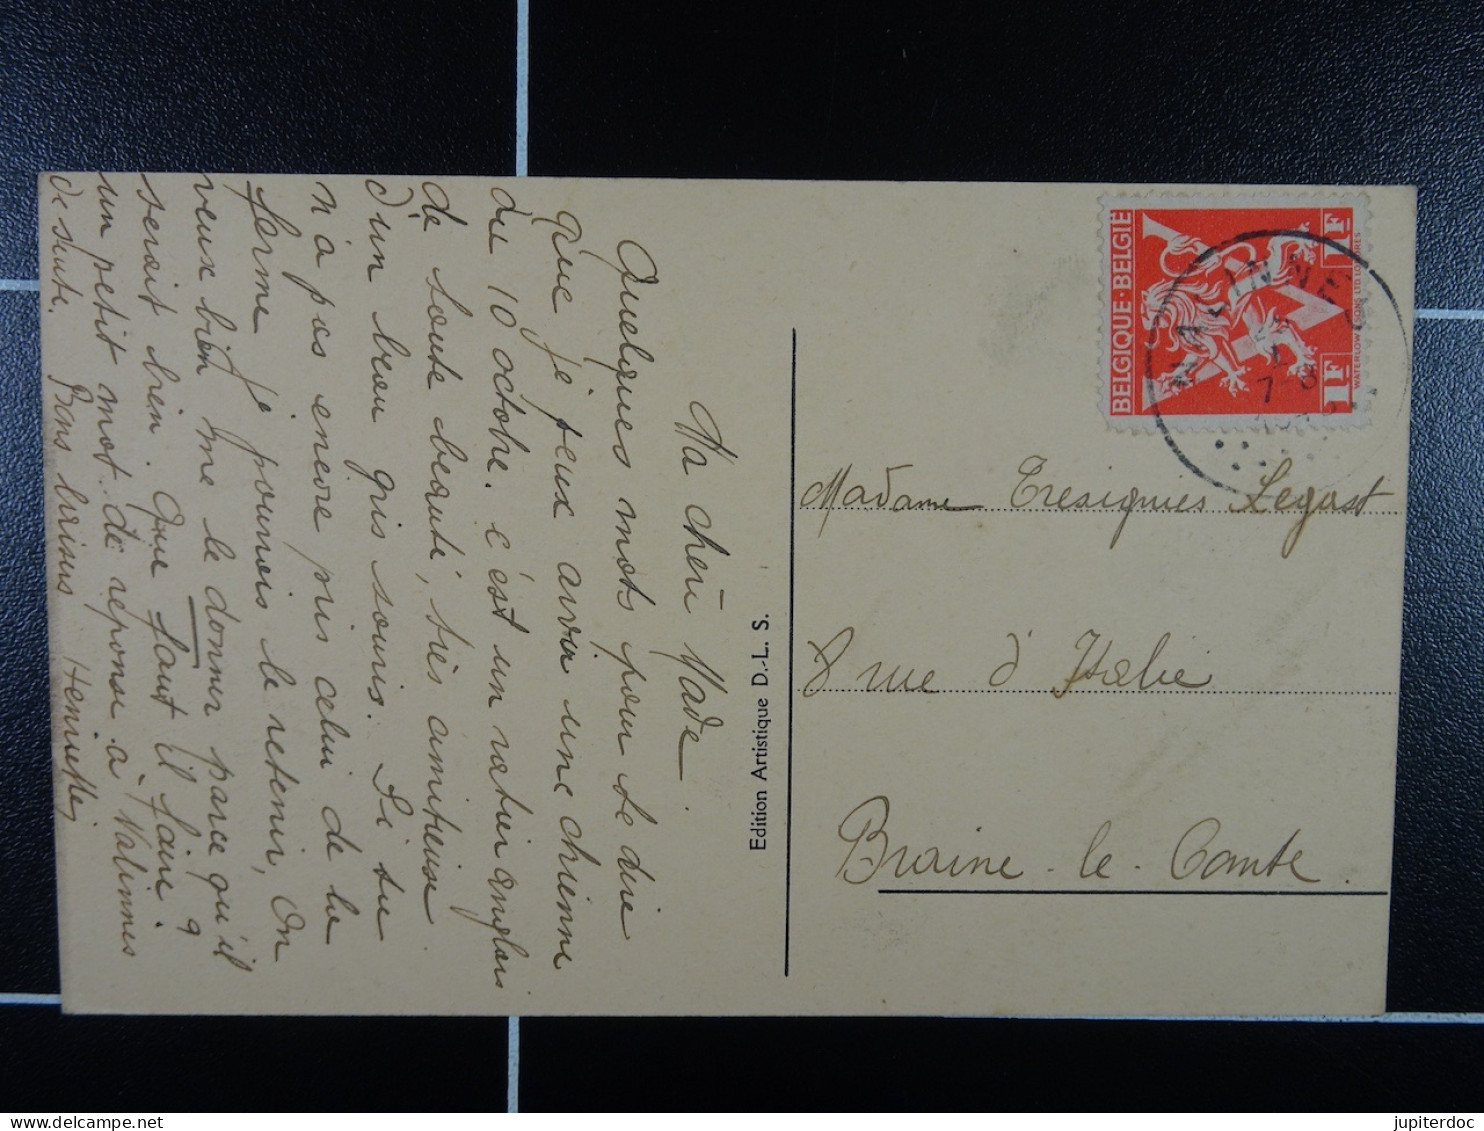 Ma cheri Made.
Quelques mots pour te dire
Que je peux avoir une chienne
du 10 octobre. c'est un ratier anglais
de toute beauté, très amitieuse
d'un beau gris souris. Si tu
n'a pas encore pris celui de la
ferme je pourrois le retenir, On
veux bien me le donner parce qu'il
serait bien. Que faut il faire?
un petit mot de réponse à Nalinnes
de suite. Bons baisers Henriette
Edition Artistique D.-L. S.
BELGIQUE·BELGIË
1F
1F
WATERLOW & SONS LTD LONDRES
7-8
Madame Tresignies Legast
8 rue d'Italie
Braine-le-Comte.
jupiterdoc